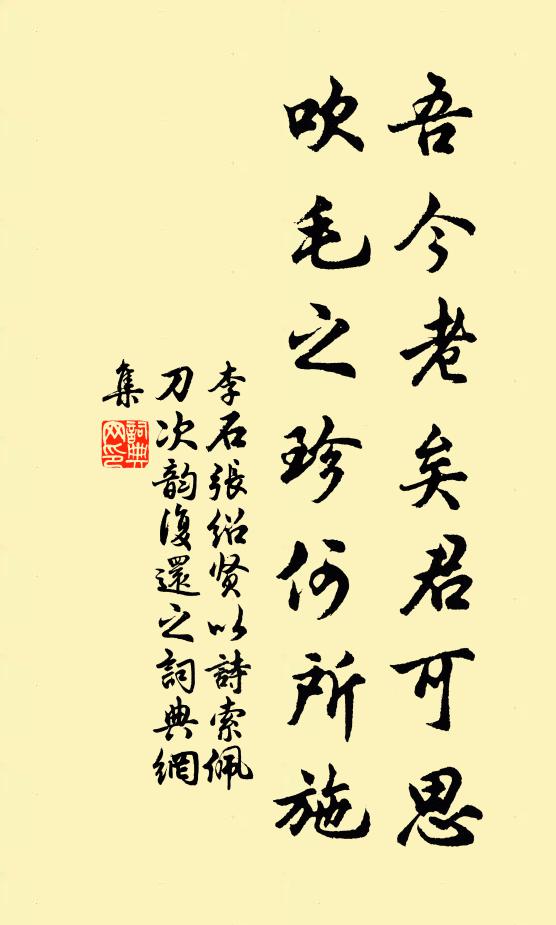 吾今老矣君可思
吹毛之珍何所施
李石張紹贤以詩索佩
刀次韵復還之詞典網
集
詞典网印